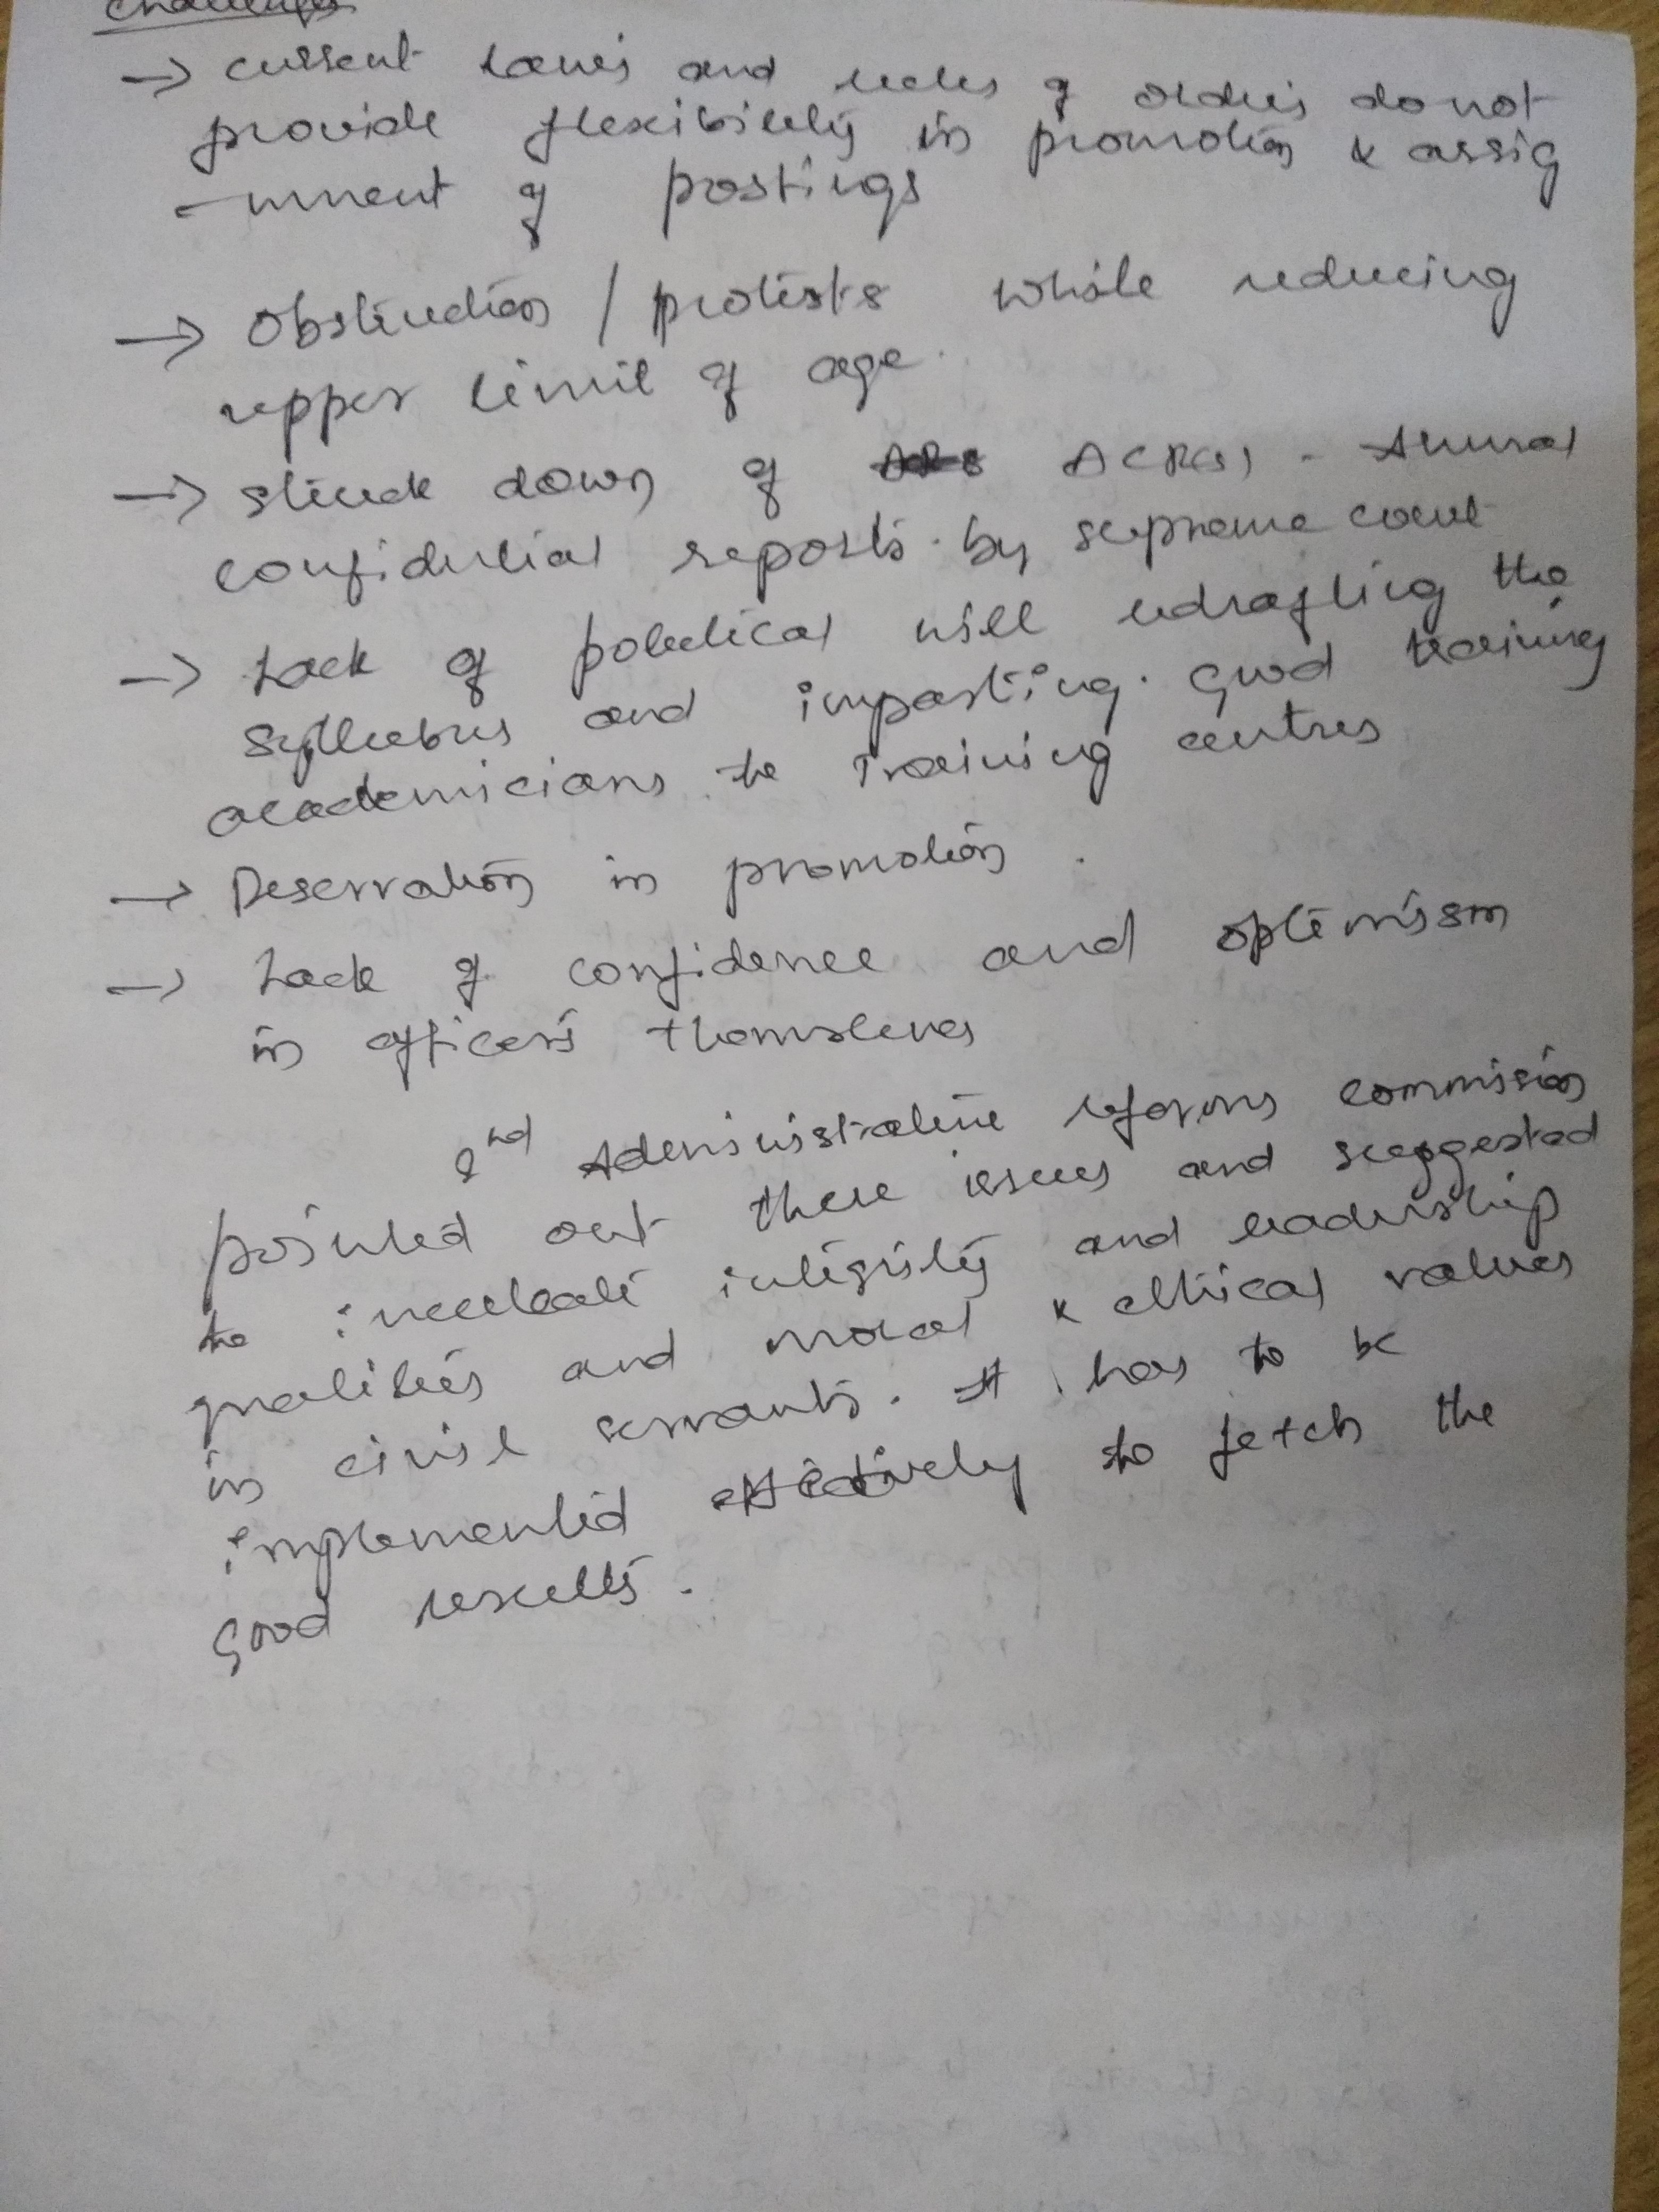 Challenges
→ current laws and rules of orders do not
provide flexibility in promotion & assig
-nment of postings
→ Obstruction / protests while reducing
upper limit of age.
→ struck down of ACR(s) - Annual
confidential reports by supreme court
→ Lack of political will redrafting the
syllabus and imparting good training
academicians to Training centres
→ Reservation in promotion.
→ Lack of confidence and optimism
in officers themselves
2nd Administrative reforms commission
pointed out these issues and suggested
to inculcate integrity and leadership
qualities and moral & ethical values
in civil servants. It has to be
implemented effectively to fetch the
good results.